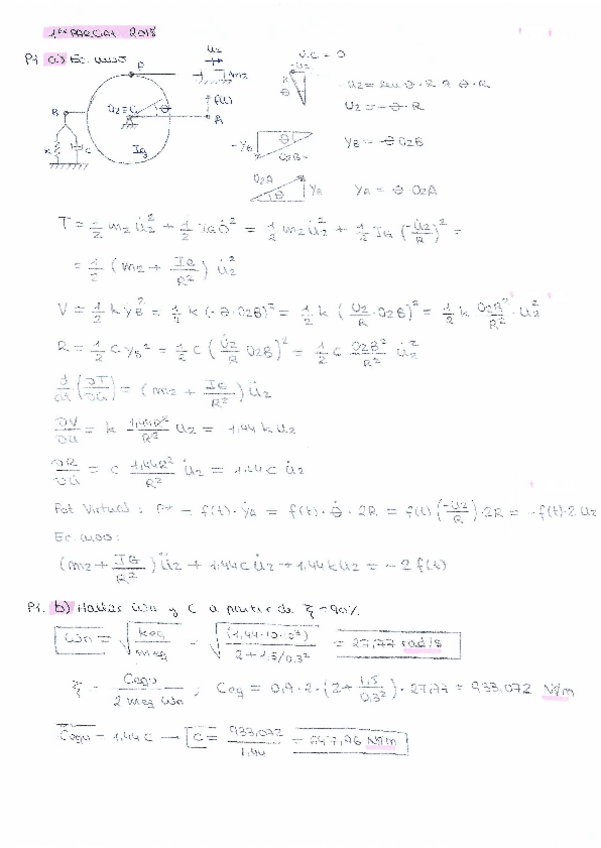 1er PARCIAL 2018
P1 a) Ec. mov
V.C = 0
u2
m2
f(t)
A
B
O2 = G
θ
IG
k
c
R
θ
u2 = sen θ · R ≈ θ · R
u2 = - θ · R
- yB
θ
O2B
yB = - θ O2B
O2A
θ
yA
yA = θ · O2A
T = 1/2 m2 u̇2² + 1/2 IG θ̇² = 1/2 m2 u̇2² + 1/2 IG (-u̇2/R)² =
= 1/2 (m2 + IG/R²) u̇2²
V = 1/2 k yB² = 1/2 k (- θ · O2B)² = 1/2 k (u2/R · O2B)² = 1/2 k O2B²/R² · u2²
R = 1/2 c ẏB² = 1/2 c (u̇2/R O2B)² = 1/2 c O2B²/R² u̇2²
d/dt (∂T/∂u̇) = (m2 + IG/R²) ü2
∂V/∂u = k 1,44R²/R² u2 = 1,44 k u2
∂R/∂u̇ = c 1,44R²/R² u̇2 = 1,44 c u̇2
Pot Virtual: P* = f(t) · ẏA = f(t) · θ̇ · 2R = f(t) (-u̇2/R) · 2R = -f(t) · 2 u̇2
Ec. mov:
(m2 + IG/R²) ü2 + 1,44 c u̇2 + 1,44 k u2 = -2 f(t)
P1. b) Hallar ωn y C a partir de ξ = 90%
ωn = √(keq/meq) = √((1,44·10·10³)/(2 + 1,5/0,3²)) = 27,77 rad/s
ξ = Cequ/(2 meq ωn) ; Ceq = 0,9 · 2 · (2 + 1,5/0,3²) · 27,77 = 933,072
Cequ = 1,44 C → C = 933,072/1,44 = 647,96